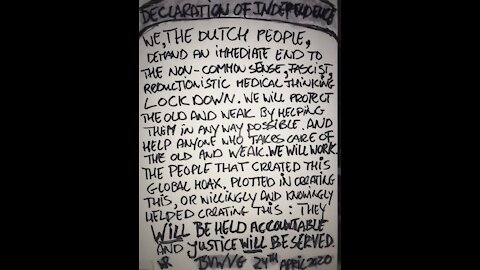 DECLARATION OF INDEPENDENCE
WE, THE DUTCH PEOPLE,
DEMAND AN IMMEDIATE END TO
THE NON-COMMON SENSE, FASCIST,
REDUCTIONISTIC MEDICAL THINKING
LOCKDOWN. WE WILL PROTECT
THE OLD AND WEAK BY HELPING
THEM IN ANY WAY POSSIBLE. AND
HELP ANYONE WHO TAKES CARE OF
THE OLD AND WEAK. WE WILL WORK
THE PEOPLE THAT CREATED THIS
GLOBAL HOAX, PLOTTED IN CREATING
THIS, OR WILLINGLY AND KNOWINGLY
HELPED CREATING THIS: THEY
WILL BE HELD ACCOUNTABLE
AND JUSTICE WILL BE SERVED.
24TH APRIL 2020